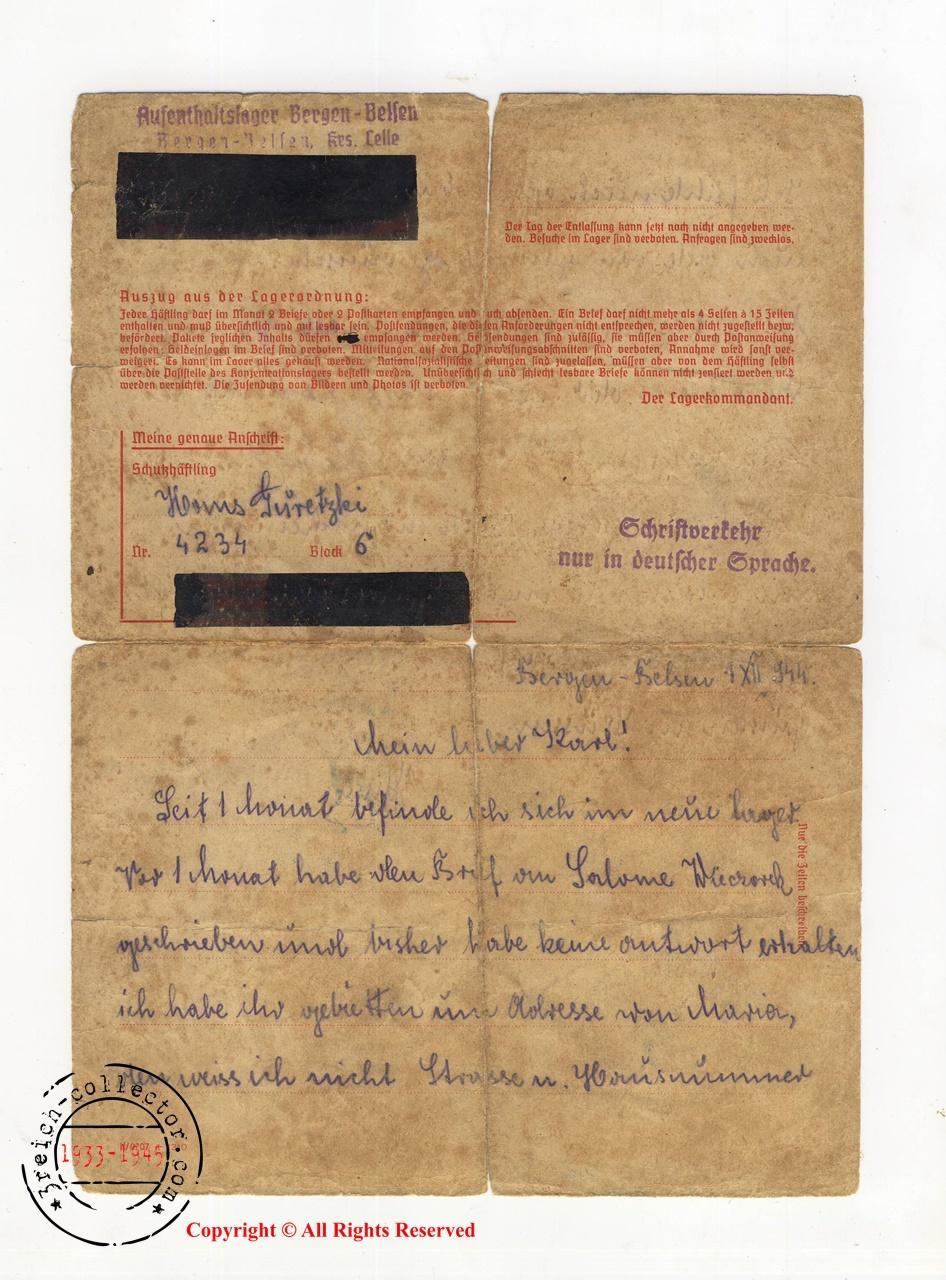 Aufenthaltslager Bergen-Belsen
Bergen-Belsen, Krs. Celle
Der Tag der Entlassung kann jetzt noch nicht angegeben wer-
den. Besuche im Lager sind verboten. Anfragen sind zwecklos.
Auszug aus der Lagerordnung:
Jeder Häftling darf im Monat 2 Briefe oder 2 Postkarten empfangen und auch absenden. Ein Brief darf nicht mehr als 4 Seiten à 15 Zeilen
enthalten und muß übersichtlich und gut lesbar sein. Postsendungen, die diesen Anforderungen nicht entsprechen, werden nicht zugestellt bezw.
befördert. Pakete jeglichen Inhalts dürfen empfangen werden. Geldsendungen sind zulässig, sie müssen aber durch Postanweisung
erfolgen; Geldeinlagen im Brief sind verboten. Mitteilungen auf den Postanweisungsabschnitten sind verboten, Annahme wird sonst ver-
weigert. Es kann im Lager alles gekauft werden. Nationalsozialistische Zeitungen sind zugelassen, müssen aber von dem Häftling selbst
über die Poststelle des Konzentrationslagers bestellt werden. Unübersichtlich und schlecht lesbare Briefe können nicht zensiert werden und
werden vernichtet. Die Zusendung von Bildern und Photos ist verboten.
Der Lagerkommandant.
Meine genaue Anschrift:
Schutzhäftling
Hans Guretzki
Nr. 4234 Block 6
Schriftverkehr
nur in deutscher Sprache.
Bergen-Belsen 1 XII 944.
Mein lieber Karl!
Seit 1 Monat befinde ich sich im neue Lager.
Vor 1 Monat habe den Brief an Salome Wieczorek
geschrieben und bisher habe keine antwort erhalten
ich habe ihr gebietten um Adresse von Maria,
den weiss ich nicht Strasse u. Hausnummer
Nur die Zeilen beschreiben
3reich-collector.com
1933-1945
Copyright © All Rights Reserved